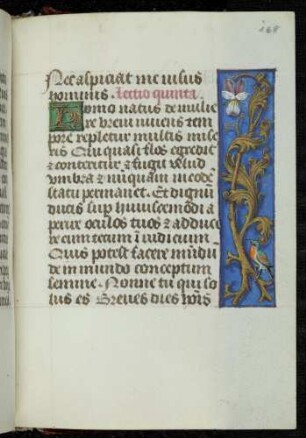 168
Nec aspiciat me visus
hominis. Lectio quinta.
Homo natus de mulie
re brevi vivens tem
pore repletur multis mise
riis Qui quasi flos egredit̉
& conteritur & fugit velud
umbra & nūquam in eodē
statu permanet. Et dignū
ducis sup̱ huiuscemodi a
perire oculos tuos & adduce
re eum tecum ī iudicium
Quis potest facere mūdū
de inmundo conceptum
semine. Nonne tu qui so
lus es Breves dies hoīs